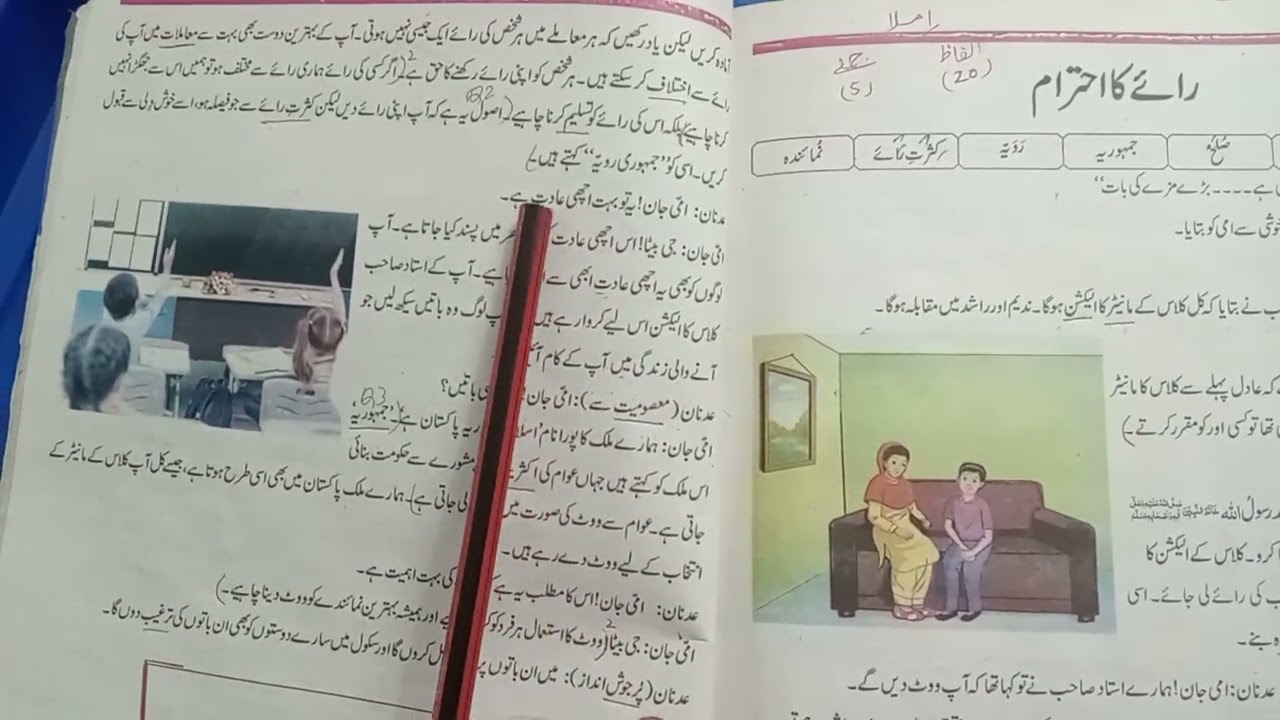 املا
الفاظ
(20)
جملے
(5)
رائے کا احترام
صُلح
جمہوریہ
رَوَیّہ
کثرتِ رائے
نُمائندہ
ہے۔۔۔۔بڑے مزے کی بات“
خوشی سے امی کو بتایا۔
نے بتایا کہ کل کلاس کے مانیٹر کا الیکشن ہوگا۔ ندیم اور راشد میں مقابلہ ہوگا۔
کہ عادل پہلے سے کلاس کا مانیٹر
تھا تو کسی اور کو مقرر کرتے۔)
رسولُ اللہ
کرو۔ کلاس کے الیکشن کا
کی رائے لی جائے۔ اسی
بنے۔
عدنان: امی جان! ہمارے استاد صاحب نے تو کہا تھا کہ آپ ووٹ دیں گے۔
آمادہ کریں لیکن یاد رکھیں کہ ہر معاملے میں ہر شخص کی رائے ایک جیسی نہیں ہوتی۔ آپ کے بہترین دوست بھی بہت سے معاملات میں آپ کی
رائے سے اختلاف کر سکتے ہیں۔ ہر شخص کو اپنی رائے رکھنے کا حق ہے۔ (اگر کسی کی رائے ہماری رائے سے مختلف ہو تو ہمیں اس سے جھگڑا نہیں
کرنا چاہیے) بلکہ اس کی رائے کو تسلیم کرنا چاہیے (اصول یہ ہے کہ آپ اپنی رائے دیں لیکن کثرتِ رائے سے جو فیصلہ ہو، اسے خوش دلی سے قبول
Q2
کریں۔ اسی کو ”جمہوری رویّہ“ کہتے ہیں۔)
عدنان: امّی جان! یہ تو بہت اچھی عادت ہے۔
امّی جان: جی بیٹا! اس اچھی عادت میں پسند کیا جاتا ہے۔ آپ
لوگوں کو بھی یہ اچھی عادت ابھی سے ہے۔ آپ کے استاد صاحب
کلاس کا الیکشن اس لیے کروا رہے ہیں لوگ وہ باتیں سیکھ لیں جو
آنے والی زندگی میں آپ کے کام
عدنان (معصومیت سے): امّی جان باتیں؟
Q3
امّی جان: ہمارے ملک کا پورا نام پاکستان ہے (’جمہوریہ‘
اس ملک کو کہتے ہیں جہاں عوام کی مشورے سے حکومت بنائی
جاتی ہے۔ عوام سے ووٹ کی صورت میں لی جاتی ہے)۔ ہمارے ملک پاکستان میں بھی اسی طرح ہوتا ہے، جیسے کل آپ کلاس کے مانیٹر کے
انتخاب کے لیے ووٹ دے رہے ہیں۔
عدنان: امّی جان! اس کا مطلب یہ ہے کی بہت اہمیت ہے۔
امّی جان: جی بیٹا! (ووٹ کا استعمال ہر فرد کو اور ہمیشہ بہترین نمائندے کو ووٹ دینا چاہیے۔)
عدنان (پُرجوش انداز): میں ان باتوں پر کروں گا اور سکول میں سارے دوستوں کو بھی ان باتوں کی ترغیب دوں گا۔